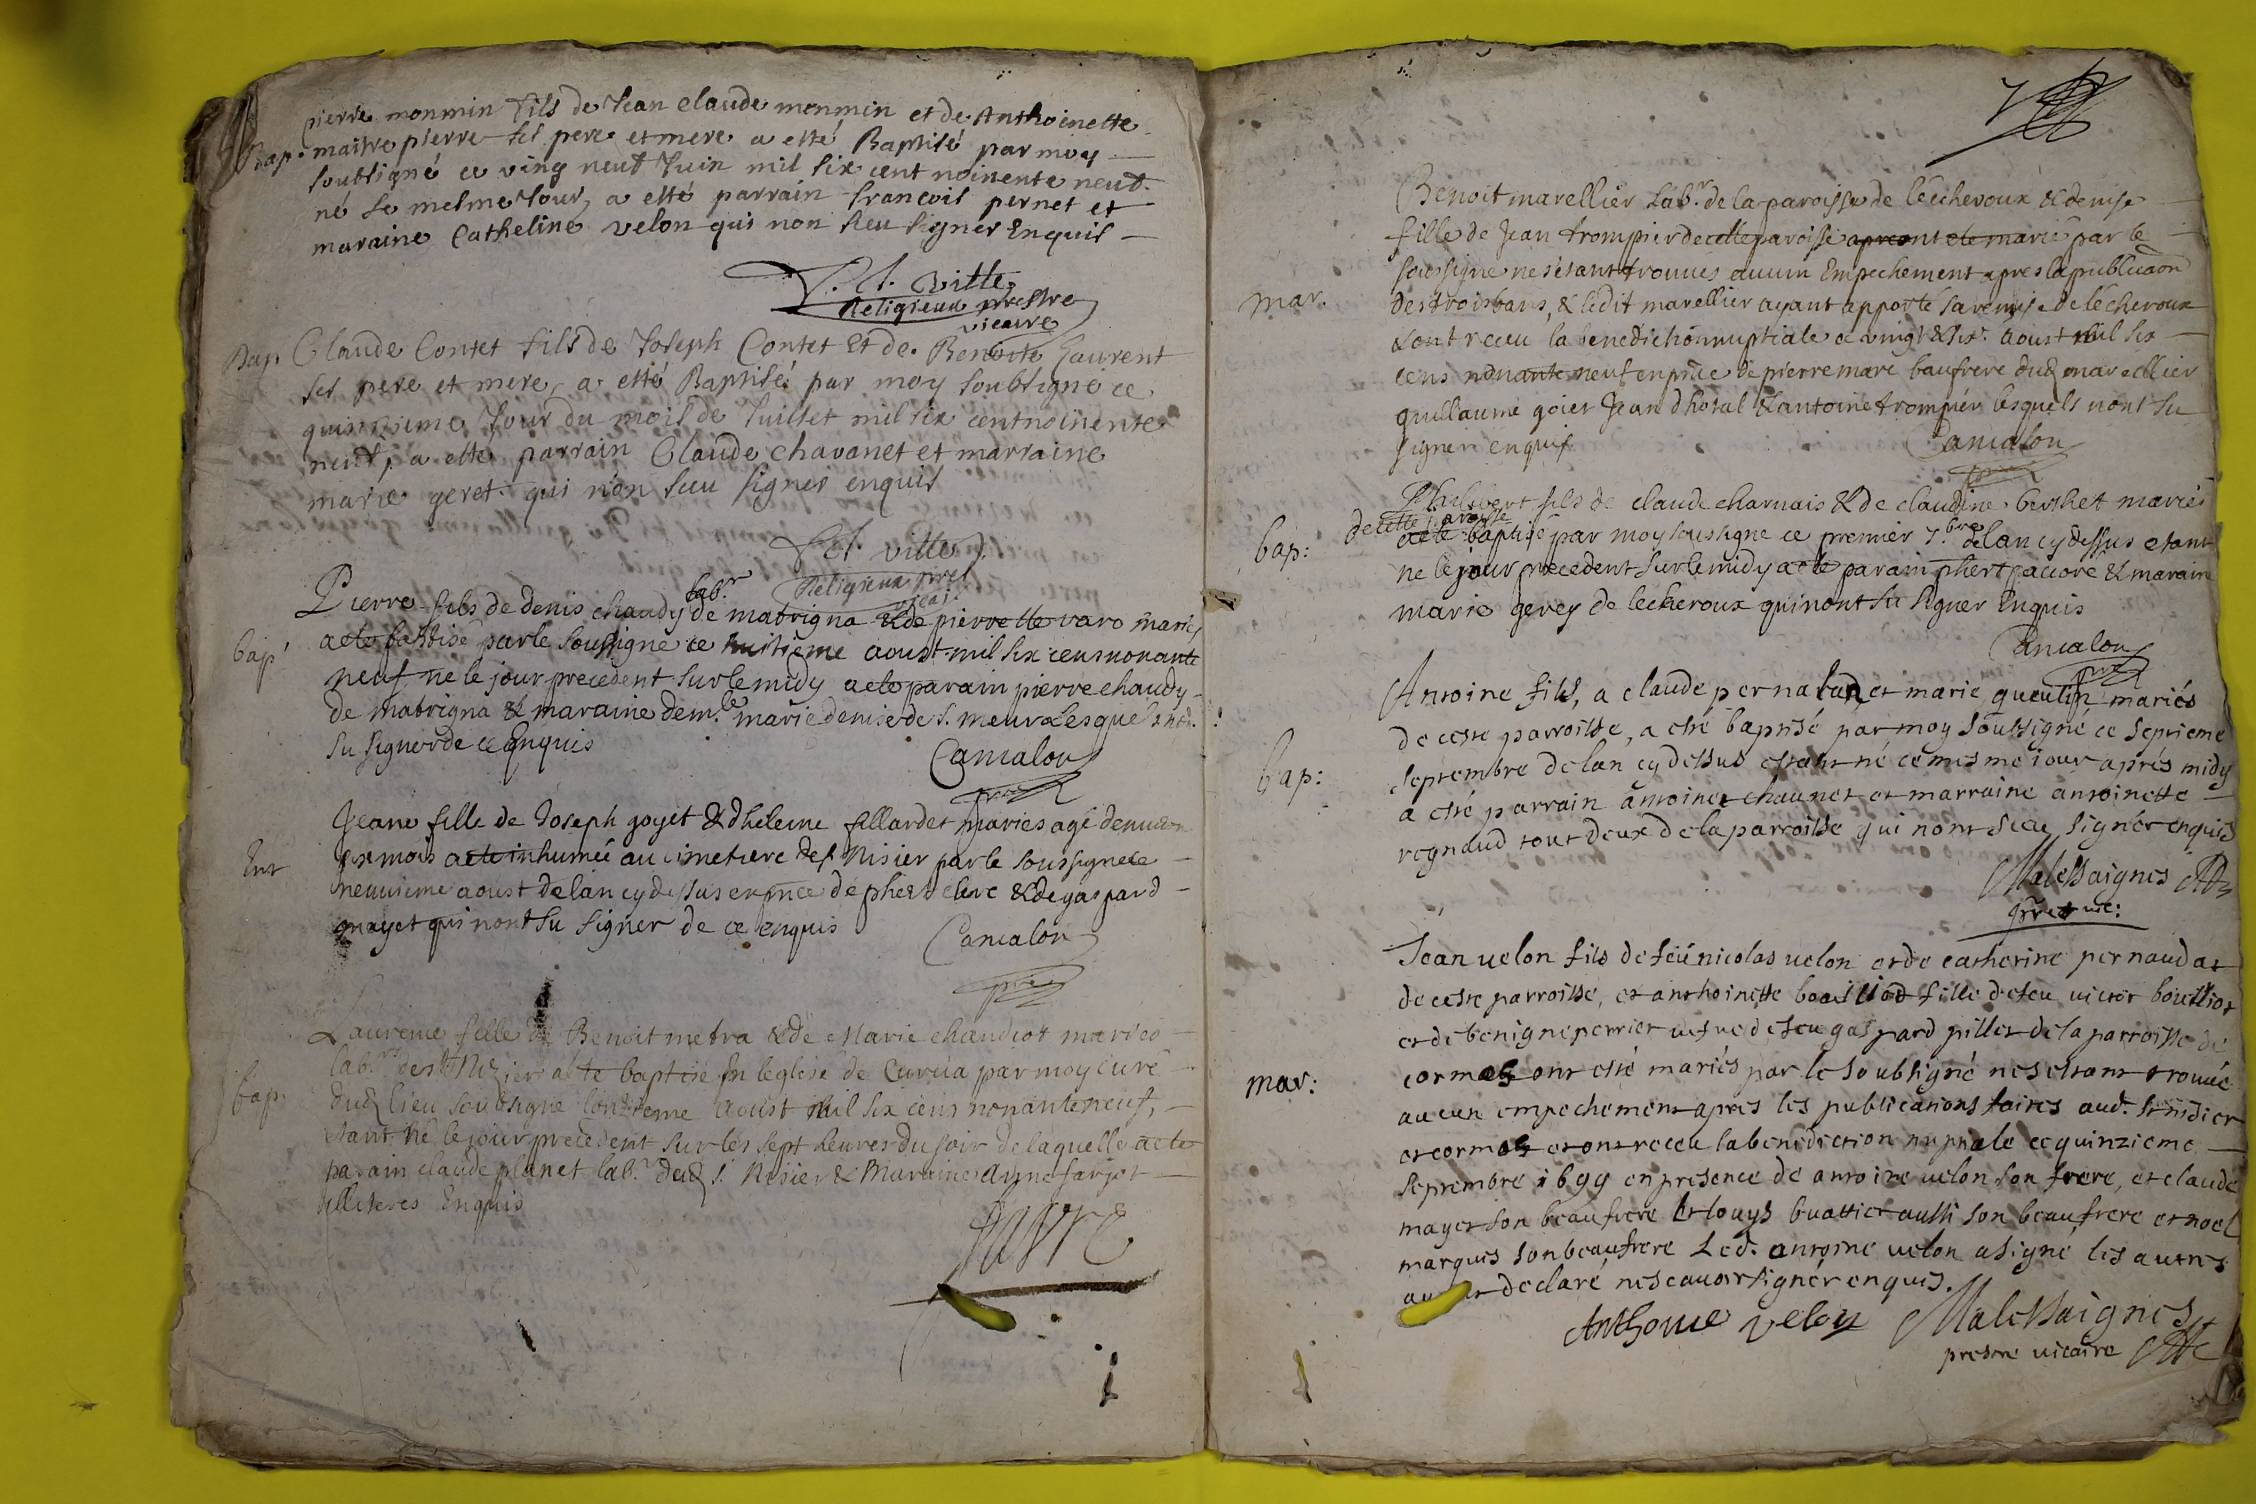 pierre monmin fils de Jean claude monmin et de Anthoinette
Bap. maitre pierre ses pere et mere a esté Baptisé par moy
soubsigné ce ving neuf Juin mil six cent noinente neuf.
né le mesme Jour, a esté parrain francois pernet et
maraine Catheline velon qui non sceu signer Enquis
F. Cl. ville
Religieux prestre
vicaire
Bap. Claude Contet fils de Joseph Contet Et de Benoite Laurent
ses pere et mere, a esté Baptisé par moy soubsigné ce
quinsieme Jour du mois de Juillet mil six cent noinente
neuf, a esté parrain Claude chavanet et marraine
marie geret qui non sceu signer enquis
F. Cl. ville
Religieux pret
vicai.
Pierre fils de denis chaudy labr de matrigna & de pierrette varo mariés
bap acté baptisé par le soussigne ce huitieme aoust mil six cens nonante
neuf ne le jour precedent sur le midy a eté parain pierre chaudy
de matrigna & maraine demle marie denise de s. meurx lesquels n'ont
su signer de ce Enquis
Camalou
pre
Jeane fille de Joseph goyet & dheleine fillardet mariés agé denuiron
Ent six mois a eté inhumée au cimetiere de s. Nisier par le soussigné le
neuuieme aoust de lan cy dessus en pnce de phert clerc & de gaspard
mayet qui nont su signer de ce enquis
Camalou
pre
Laurence fille de Benoit metra & de Marie chaudiot mariés
labrs de st Nizier a eté baptisé En leglise de Curcia par moy curé
bap. dud lieu soussigne lonzieme Aoust mil six cens nonante neuf,
etant né le jour precedent sur les sept heures du soir de laquelle a eté
parain claude planet labr. dud s. Nisier & Maraine Anne farjot
illiteres Enquis
FAVRE
7
Benoit marellier Labr. de la paroisse de lécheroux & denise
fille de Jean trompier de cette paroisse apres ont eté marié par le
soussigne ne sétant trouués aucun Empechement apres la publicaon
mar. des trois bans, & ledit marellier ayant apporté sa remise de lécheroux
& ont receu la benediction nuptiale ce vingt & six. aoust mil six
cens nonante neuf en pnce de pierre mare baufrere dud marellier
guillaume goier Jean dhotal & antoine trompier lesquels nont su
signer enquis
Camalou
pre
Philibert fils de claude charnais & de claudine berthet mariés
de cette paroisse
bap: a eté baptisé par moy soussigne ce premier 7.bre de lan cy dessus etant
ne le jour precedent sur le midy a eté parain phert paccore & maraine
marie gerey de lecheroux qui nont su signer Enquis
Camalou
pre
Antoine fils, a claude pernaudat et marie gueutin mariés
de ceste parroisse, a esté baptisé par moy soubsigné ce septieme
bap: septembre de lan cy dessus estant né ce mesme iour aprés midy
a esté parrain antoine chaunet et marraine antoinette
regnaud tout deux de la parroisse qui nont sceu signér enquis
Malessaignes
pretre uic:
Jean uelon fils de feu nicolas uelon et de catherine pernaudat
de ceste parroisse, et anthoinette bouilliod fille de feu uictor bouilliot
et de benigne perrier uefue de feu gaspard pillet de la parroisse de
cormos ont esté mariés par le soubsigné ne sestant trouué
mar: aucun empechement apres les publications faites aud. st nidier
et cormos et ont receu la benediction nuptiale ce quinzieme
septembre 1699 en presence de antoine uelon son frere, et claude
mayet son beaufrere et louys buattier aussi son beaufrere et noel
marquis son beaufrere Led. antoine uelon a signé les autres
ayant declaré ne scauoir signér enquis.
Anthoine velon Malessaignes
prestre uicaire